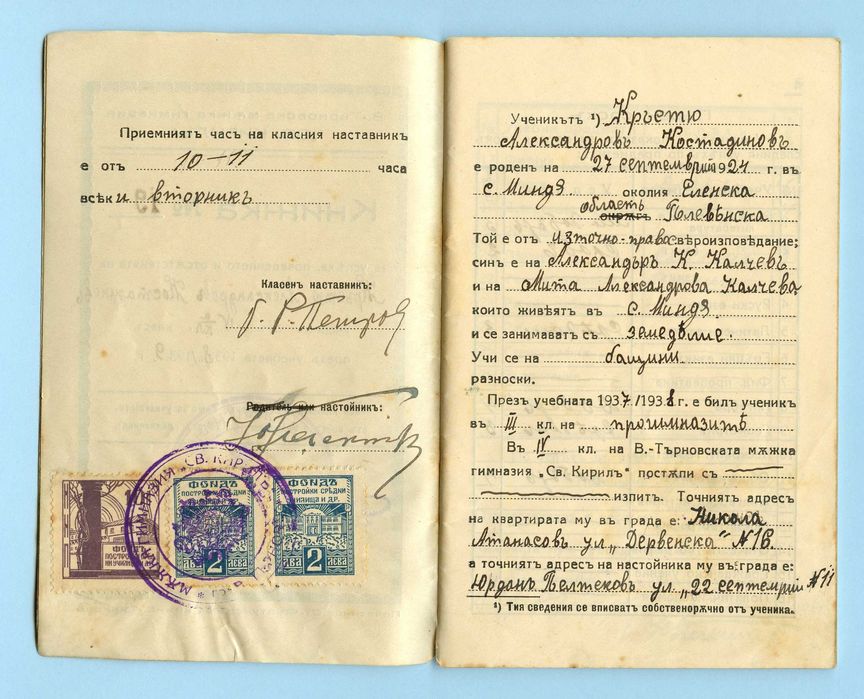 Приемниятъ часъ на класния наставникъ
е отъ 10-11 часа
всѣки вторникъ
Класенъ наставникъ:
Г. Р. Петров
Родитель или настойникъ:
МѪЖКА ГИМНАЗИЯ „СВ. КИРИЛЪ“
ФОНДЪ
ПОСТРОЙКИ СРѢДНИ
УЧИЛИЩА И ДР.
2
ДВА ЛЕВА
ФОНДЪ
ПОСТРОЙКИ СРѢДНИ
УЧИЛИЩА И ДР.
2
ДВА ЛЕВА
Ученикътъ ¹) Кръстю
Александровъ Костадиновъ
е роденъ на 27 септемврий 1924 г. въ
с. Миндя околия Еленска
область
окрѫгъ Плевѣнска
Той е отъ източно-православно вѣроизповѣдание;
синъ е на Александъръ К. Калчевъ
и на Мита Александрова Калчева
които живѣятъ въ с. Миндя
и се занимаватъ съ земедѣлие.
Учи се на бащини
разноски.
Презъ учебната 1937/1938 г. е билъ ученикъ
въ III кл. на прогимназитѣ
Въ IV кл. на В.-Търновската мѫжка
гимназия „Св. Кирилъ“ постѫпи съ
изпитъ. Точниятъ адресъ
на квартирата му въ града е: Никола
Атанасовъ ул. „Дервенска“ №16.
а точниятъ адресъ на настойника му въ града е:
Юрданъ Пелтековъ ул. „22 септемврий №11
¹) Тия сведения се вписватъ собственорѫчно отъ ученика.